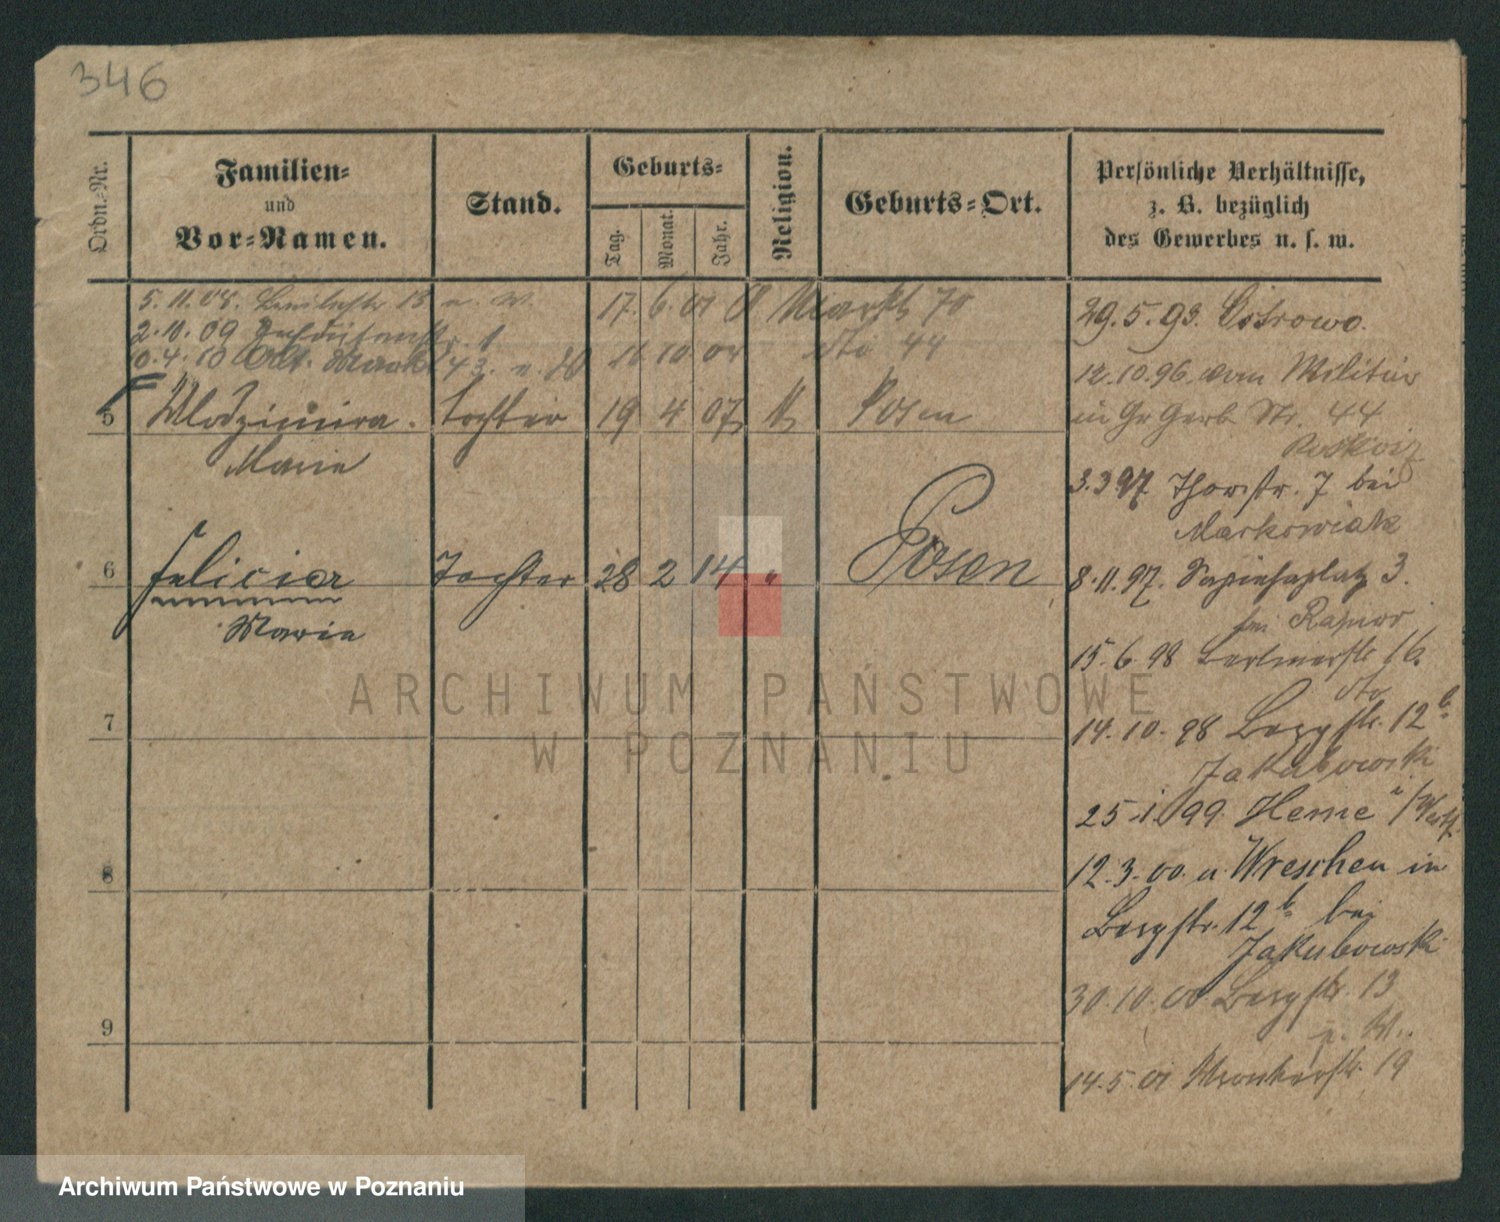 346
Ordn.-Nr.
Familien-
und
Vor-Namen.
Stand.
Geburts-
Tag.
Monat.
Jahr.
Religion.
Geburts-Ort.
Persönliche Verhältnisse,
z. B. bezüglich
des Gewerbes u. s. w.
5. 11. 08. 18 u. W. 17. 6. 01 Markt 70
2. 10. 09 1
10. 4. 10 Alt. Markt 43. 11 10 04 dto 44
5 Wlodzimira. Tochter 19 4 07 Posen
Marie
6 Felicia Tochter 28 2 14 " Posen
Maria
7
8
9
29. 5. 93. Ostrowo.
12. 10. 96. vom Militär
in Gr Gerb. Str. 44
3. 3 97. Thorstr. 7 bei
Markowiak
8. 11. 97. Sapiehaplatz 3.
bei
15. 6. 98 16.
dto
14. 10. 98 Bergstr. 12 b
Jakubowski
25. 1. 99. Heine
12. 3. 00. a Wreschen in
Bergstr. 12 b bei
Jakubowski
30. 10. 00 Bergstr. 13
14. 5. 01 Wronkerstr. 19
ARCHIWUM PAŃSTWOWE
W POZNANIU
Archiwum Państwowe w Poznaniu